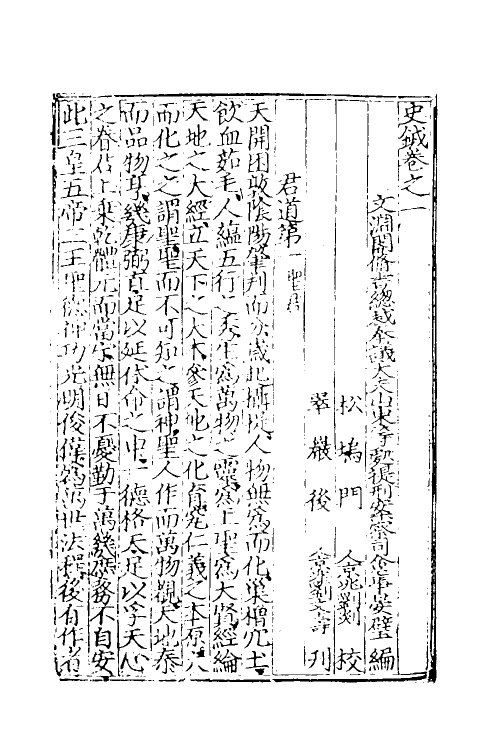 史鉞卷之一
文淵閣脩書總裁奉議大夫山東等處提刑按察司僉事晏璧 編
松塢門人京兆劉剡 校
翠巖後人京兆劉文壽 刊
君道第一 聖君
天開因敢陰陽肇判而分歲起攝提人物無為而化巢橧穴土
飲血茹毛人蘊五行之秀生為萬物之靈為上聖為大賢經綸
天地之大經立天下之大本參天地之化育宪仁義之本原大
而化之之謂聖聖而不可知之謂神聖人作而萬物覩天地泰
而品物亨幾康弼直足以延休命之申一德格天足以孚天心
之眷佑上乘乾體元而當宁無日不憂勤于萬幾庶務不自安
此三皇五帝二王聖德神功光明俊偉為萬世法程後有作者